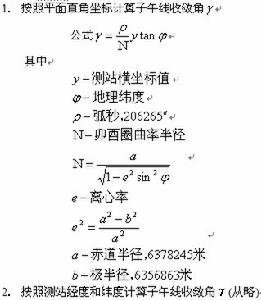 1. 按照平面直角坐标计算子午线收敛角γ
公式γ = ρ/N y tan φ
其中
y = 测站横坐标值
φ = 地理纬度
ρ = 弧秒,206265"
N = 卯酉圈曲率半径
N = a/√(1 - e² sin² φ)
e = 离心率
e² = (a² - b²)/a²
a = 赤道半径,6378245米
b = 极半径,6356863米
2. 按照测站经度和纬度计算子午线收敛角 T (从略)